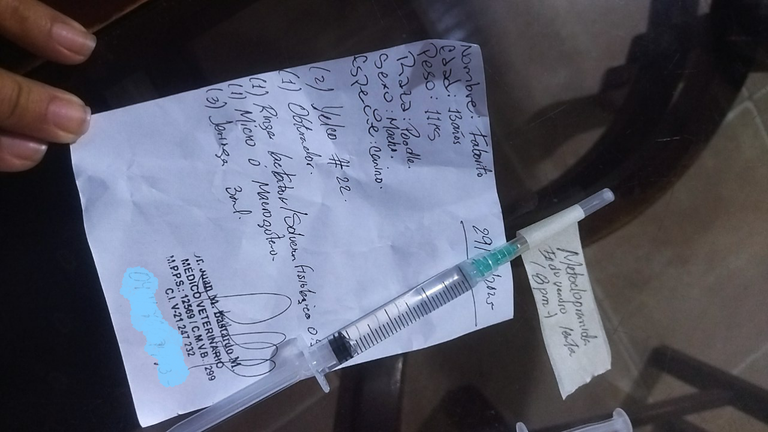 Nombre: Faborito
Edad: 13 años
Peso: 11 kg
Raza: Poodle
Sexo: Macho
Especie: Canino.
29/ /2025
(2) Yelco # 22.
(1) Obturador.
(1) Ringer lactato / Solución fisiológico 0.
(1) Micro o Macrogotero
(3) Jeringa 3ml.
MEDICO VETERINARIO
M.P.P.S.: 12569 / C.M.V.B. 299
C.I. V-21.247.232
Metoclopramida
Endovenoso lenta
8pm